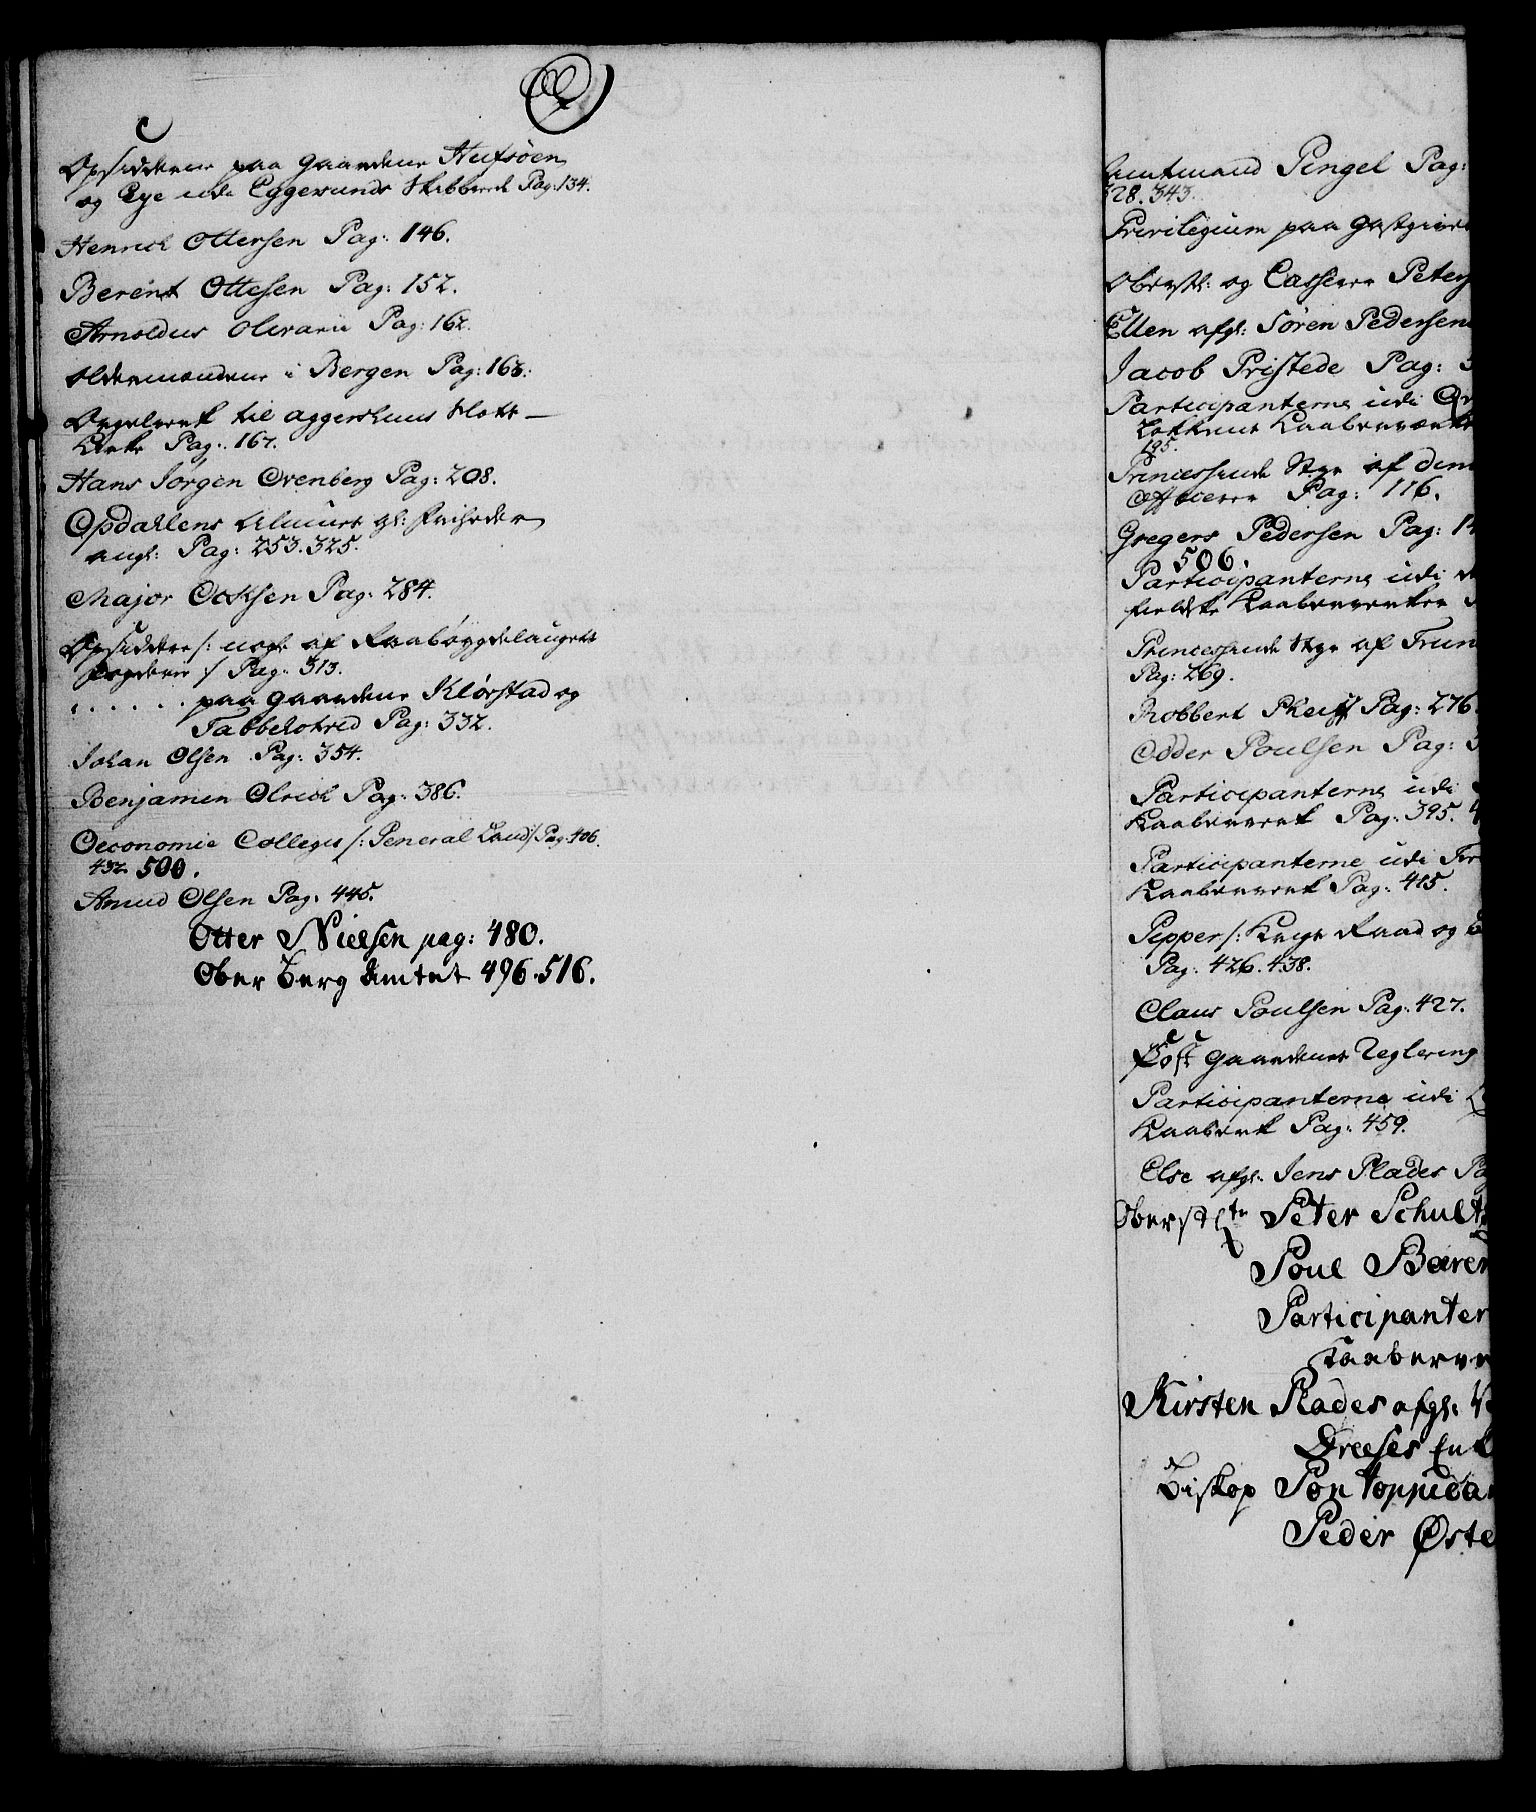 O
Opsidderne paa Gaardene Hufsøen
og Eye udi Eggersunds Skibbrede Pag: 134.
Henrich Ottersen Pag: 146.
Berent Ottesen Pag: 152.
Arnoldus Olivarii Pag: 162.
Oldermændene i Bergen Pag: 163.
Orgelverk til Aggershuus Slots
Kirke Pag: 167.
Hans Jørgen Ovenberg Pag: 208.
Opdallens Almues gl: Friheder
angl: Pag: 253. 325.
Major Ocksen Pag: 284.
Opsiddere /: nogle af Raabøygdelaugets
Fogderie :/ Pag: 313.
. . . . . . paa Gaardene Klørstad og
Tabbelotved Pag: 332.
Johan Olsen Pag: 354.
Benjamin Olrich Pag: 386.
Oeconomie Collegii /: General Land :/ Pag: 406.
432. 500.
Amud Olsen Pag: 445.
Otter Nielsen pag: 480.
Ober Berg Amtet 496. 516.
Amtmand Pengel Pag:
328. 343.
Privilegium paa Gastgive
Oberstl: og Casserer Peters
Ellen afgl: Søren Pedersen
Jacob Pristede Pag:
Participanterne udi
Kaaberverk
195.
Princessinde Styr af
Officerer Pag: 116.
Gregers Pedersen Pag: 1
506.
Participanterne udi
Kaaberverker
Princessinde Styr af
Pag: 269.
Robbert Pag: 276.
Odder Poulsen Pag: 3
Participanterne udi
Kaaberverk Pag: 395.
Participanterne udi
Kaaberverk Pag: 415.
Pepper /: Krigs Raad og
Pag: 426. 438.
Claus Poulsen Pag: 427.
Post Gaardenes Reglering
Participanterne udi
Kaaberk Pag: 459.
Else afgl: Jens Plades Pag
Oberstlt Peter Schult
Poul Bären
Participanter
Kaaberve
Kirsten Plades afgl:
Dreeses Enk
Biskop Pontoppidan
Peder Øste